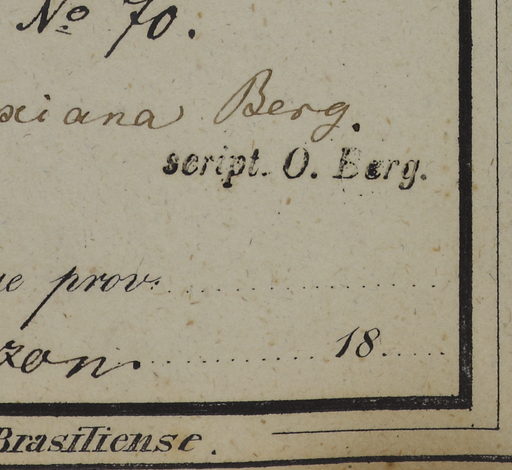 No 70.
xiana Berg.
script. O. Berg.
ue prov.
zon. 18
Brasiliense.